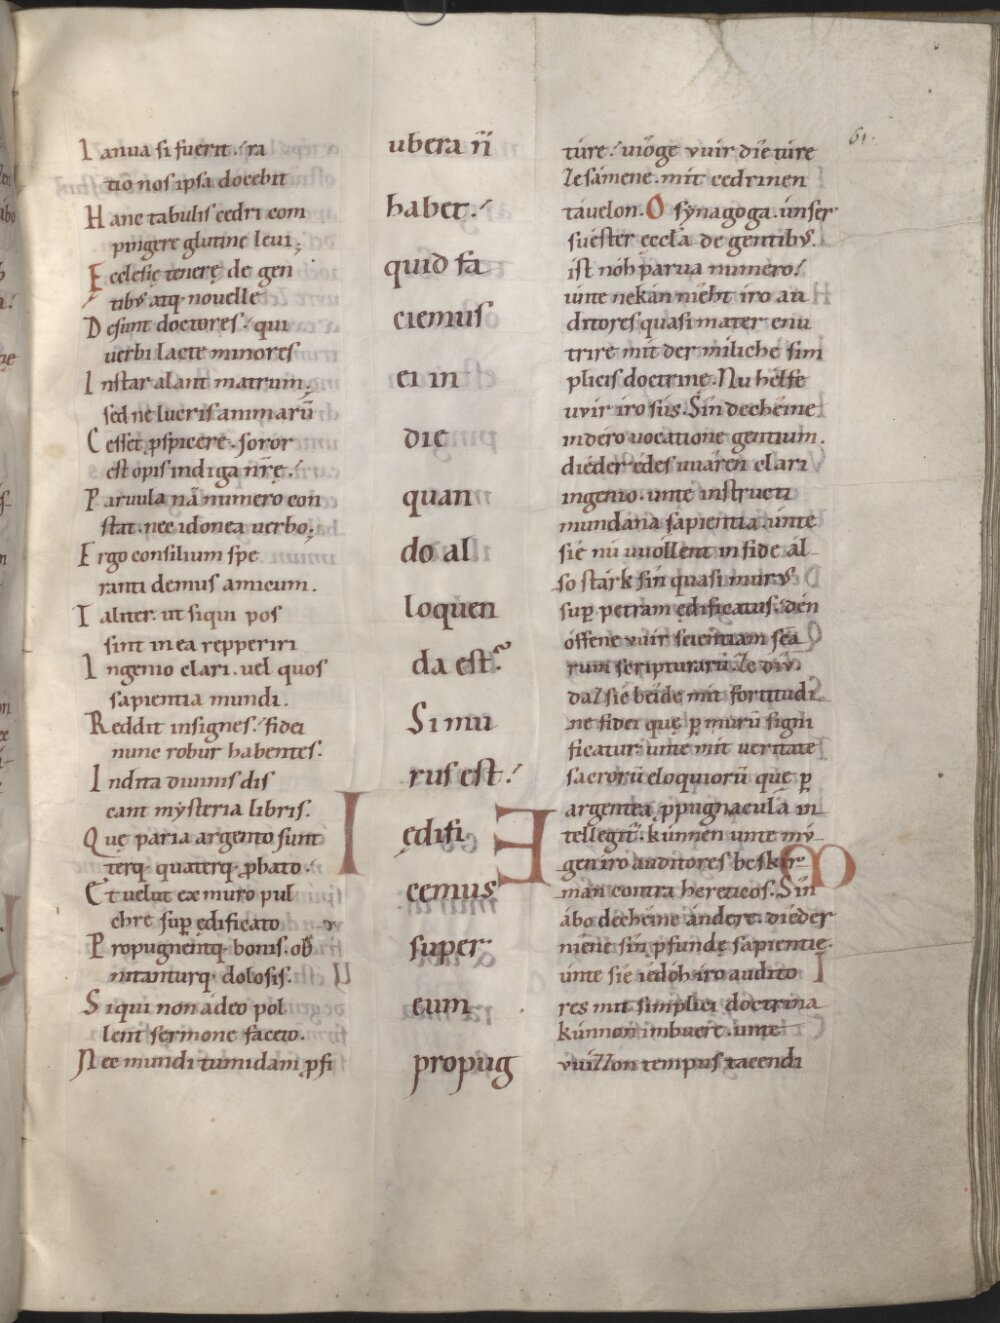 61.
Ianua si fuerit. ra
tio nos ipsa docebit
Hanc tabulis cedri com
pingere glutine leui;
Ecclesię tenerę de gen
tibꝰ atq; nouelle
Desunt doctores. qui
uerbi lacte minores
Instar alant matrum.
sed ne lucris animarū
Cesset ꝓspicere. soror
est opis indiga n̄rę.
Paruula nā numero con
stat. nec idonea uerbo;
Ergo consilium spe
ranti demus amicum.
Taliter. ut siqui pos
sint in ea repperiri
Ingenio clari. uel quos
sapientia mundi.
Reddit insignes. fidei
nunc robur habentes.
Indita diuinis dis
cant mẏsteria libris.
Quę paria argento sunt
terq; quaterq; ꝓbato.
Et uelut ex muro pul
chre suꝑ ędificato
Propugnentq; bonis. ob
nitanturq; dolosis.
Siqui non adeo pol
lent sermone faceto.
Nec mundi tumidam ꝓfi
ubera n̄
habet.
quid fa
ciemus
ei in
die
quan
do al
loquen
da est?
Si mu
rus est.
ędifi
cemus
super
eum
propug
ture. uiöge vuir die ture
lesámene. mit cedrinen
táuelon. O sẏnagoga. únser
suéster ęccła de gentibꝰ.
íst nóh parua numero.
únte nekán nieht íro áu
ditores quasi mater enu
trire mit der míliche sim
plicis doctrinę. Nu hélfe
uvir íro sús. Sín dechéine
in déro uocatione gentium.
dieder édes uuáren clari
ingenio. unte instructi
mundana sapientia. únte
sie nú uuóllent in fide ál
so stárk sin quasi murꝰ
suꝑ petram ędificatus. dén
óffene vuir scientiam sca
rum scripturarū. le div.
dal sie béide mit fortitudi
ne fidei quę ꝑ murū signi
ficatur. únte mit veritate
sacrorū eloquiorū quę ꝑ
argentea ꝓpugnacula in
tellegit̄. kúnnen unte mý
gen íro auditores beskir
mán contra hereticos. Sín
ábo dechéine ándere. dieder
niene sín ꝓfundę sapientię.
únte sie iédoh íro audito
res mit simplici doctrina
kúnnon imbuere. unte
vuíllon tempus tacendi